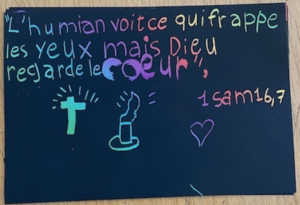 "L'humian voitce qui frappe
les yeux mais Dieu
regarde le coeur".
1 sam 16,7